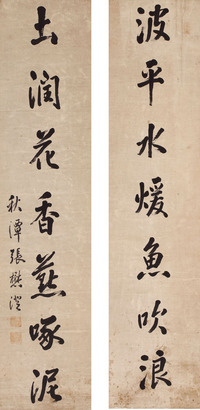 波平水煖魚吹浪
土潤花香燕啄泥
秋潭張懋澄